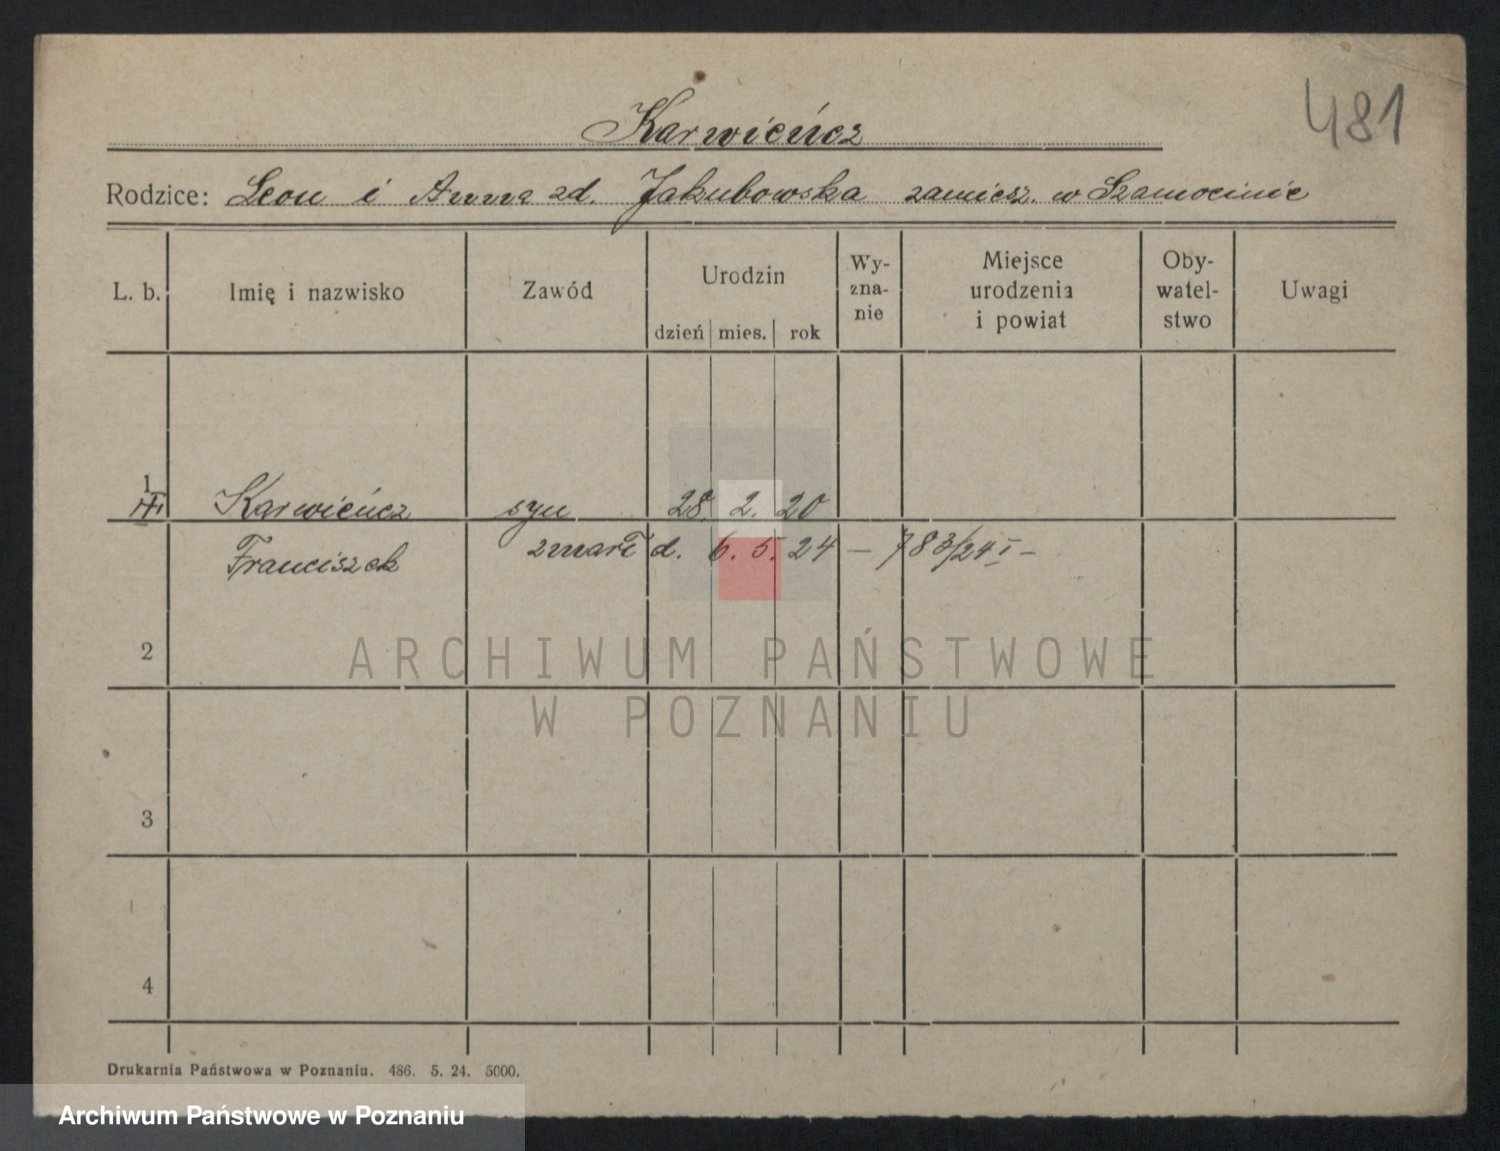 481
Karwieńcz
Rodzice: Leon i Anna zd. Jakubowska zamiesz. w Szamocinie
L. b. Imię i nazwisko Zawód Urodzin dzień mies. rok Wy-zna-nie Miejsce urodzenia i powiat Oby-watel-stwo Uwagi
1 Karwieńcz syn 28. 2. 20
Franciszek zmarł d. 6. 5. 24 — 783/24 I —
2
3
4
Drukarnia Państwowa w Poznaniu. 486. 5. 24. 5000.
ARCHIWUM PAŃSTWOWE
W POZNANIU
Archiwum Państwowe w Poznaniu